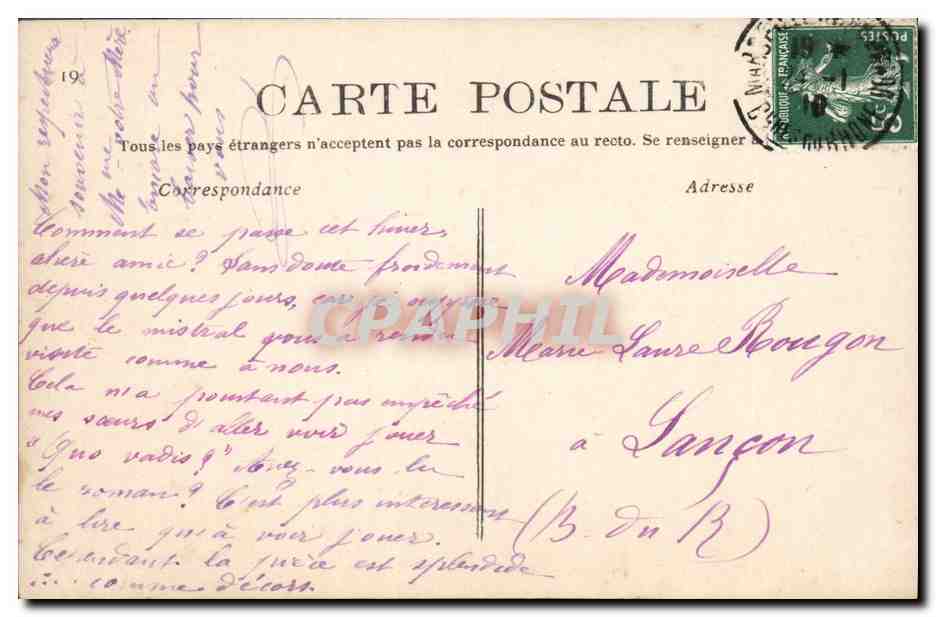 19
CARTE POSTALE
Tous les pays étrangers n'acceptent pas la correspondance au recto. Se renseigner à
Correspondance
Adresse
Comment se passe cet hiver,
chère amie? Sans doute froidement
depuis quelques jours, car j'
que le mistral vous a rendu
visite comme à nous.
Cela n'a pourtant pas empêché
mes sœurs d'aller voir jouer
"Quo vadis?" Avez-vous lu
le roman? C'est plus interessant
à lire qu'à voir jouer.
Cependant la pièce est splendide
comme décors.
Mon respectueux
souvenir à
Me votre Mère
un
baiser pour
vous
Mademoiselle
Marie Laure Rougon
à Lançon
(B. du R)
REPUBLIQUE FRANÇAISE
POSTES
5c
CPAPHIL